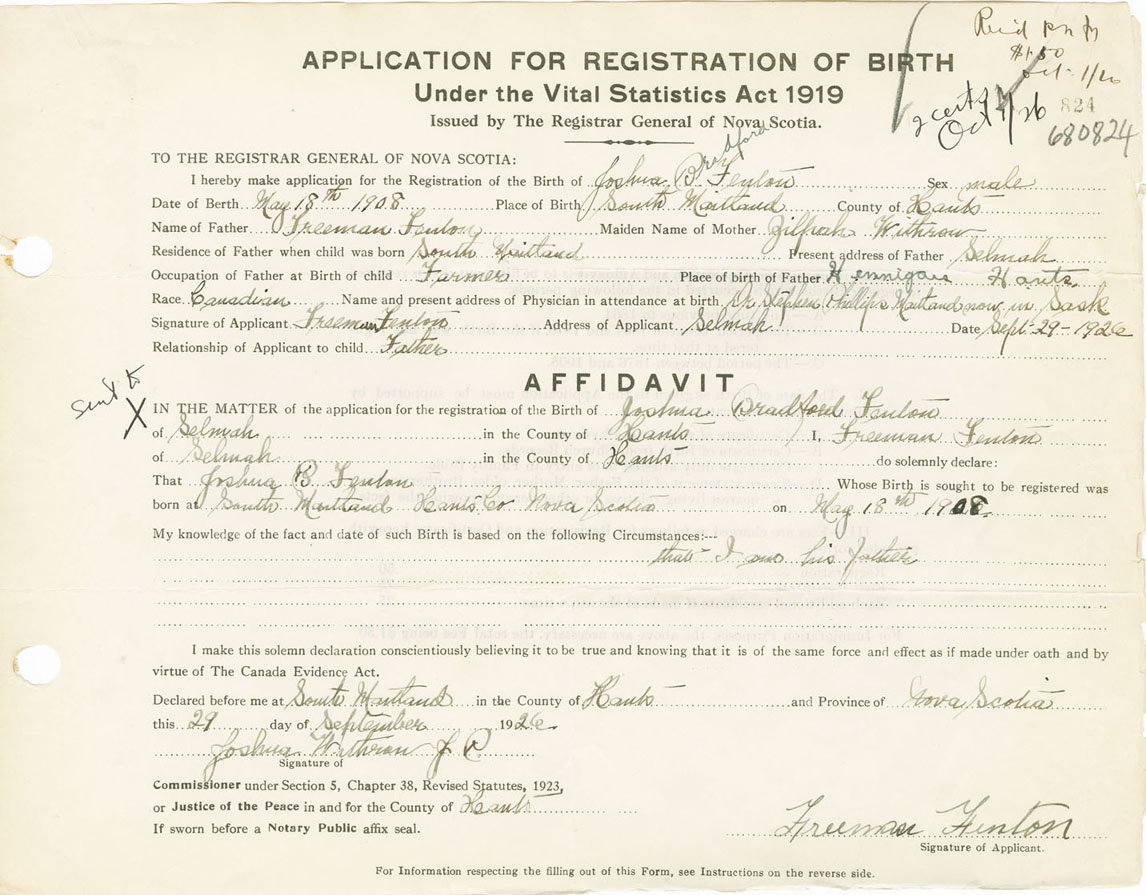 Rec'd
$1.50
Oct. 1/26
2 certs
Oct 1/26
824
680824
APPLICATION FOR REGISTRATION OF BIRTH
Under the Vital Statistics Act 1919
Issued by The Registrar General of Nova Scotia.
TO THE REGISTRAR GENERAL OF NOVA SCOTIA:
I hereby make application for the Registration of the Birth of Joshua Bradford Fenton Sex male
Date of Berth May 18th 1908 Place of Birth South Maitland County of Hants
Name of Father Freeman Fenton Maiden Name of Mother Zilpah Withrow
Residence of Father when child was born South Maitland Present address of Father Selmah
Occupation of Father at Birth of child Farmer Place of birth of Father Hennigar Hants
Race Canadian Name and present address of Physician in attendance at birth Dr Stephen Phillips Maitland now in Sask
Signature of Applicant Freeman Fenton Address of Applicant Selmah Date Sept-29-1926
Relationship of Applicant to child Father
AFFIDAVIT
Sent to
X
IN THE MATTER of the application for the registration of the Birth of Joshua Bradford Fenton
of Selmah in the County of Hants I, Freeman Fenton
of Selmah in the County of Hants do solemnly declare:
That Joshua B Fenton Whose Birth is sought to be registered was
born at South Maitland Hants Co Nova Scotia on May 18th 1908
My knowledge of the fact and date of such Birth is based on the following Circumstances:---
that I am his Father
I make this solemn declaration conscientiously believing it to be true and knowing that it is of the same force and effect as if made under oath and by
virtue of The Canada Evidence Act.
Declared before me at South Maitland in the County of Hants and Province of Nova Scotia
this 29 day of September 1926
Joshua Withrow J P.
Signature of
Commissioner under Section 5, Chapter 38, Revised Statutes, 1923,
or Justice of the Peace in and for the County of Hants
If sworn before a Notary Public affix seal.
Freeman Fenton
Signature of Applicant.
For Information respecting the filling out of this Form, see Instructions on the reverse side.